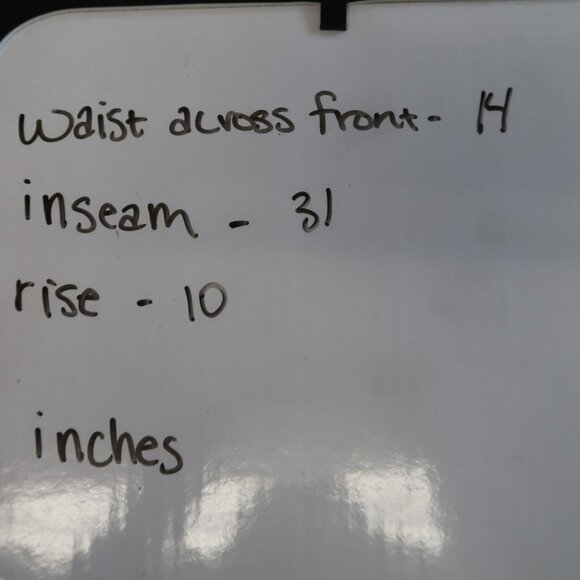 waist across front - 14
inseam - 31
rise - 10
inches